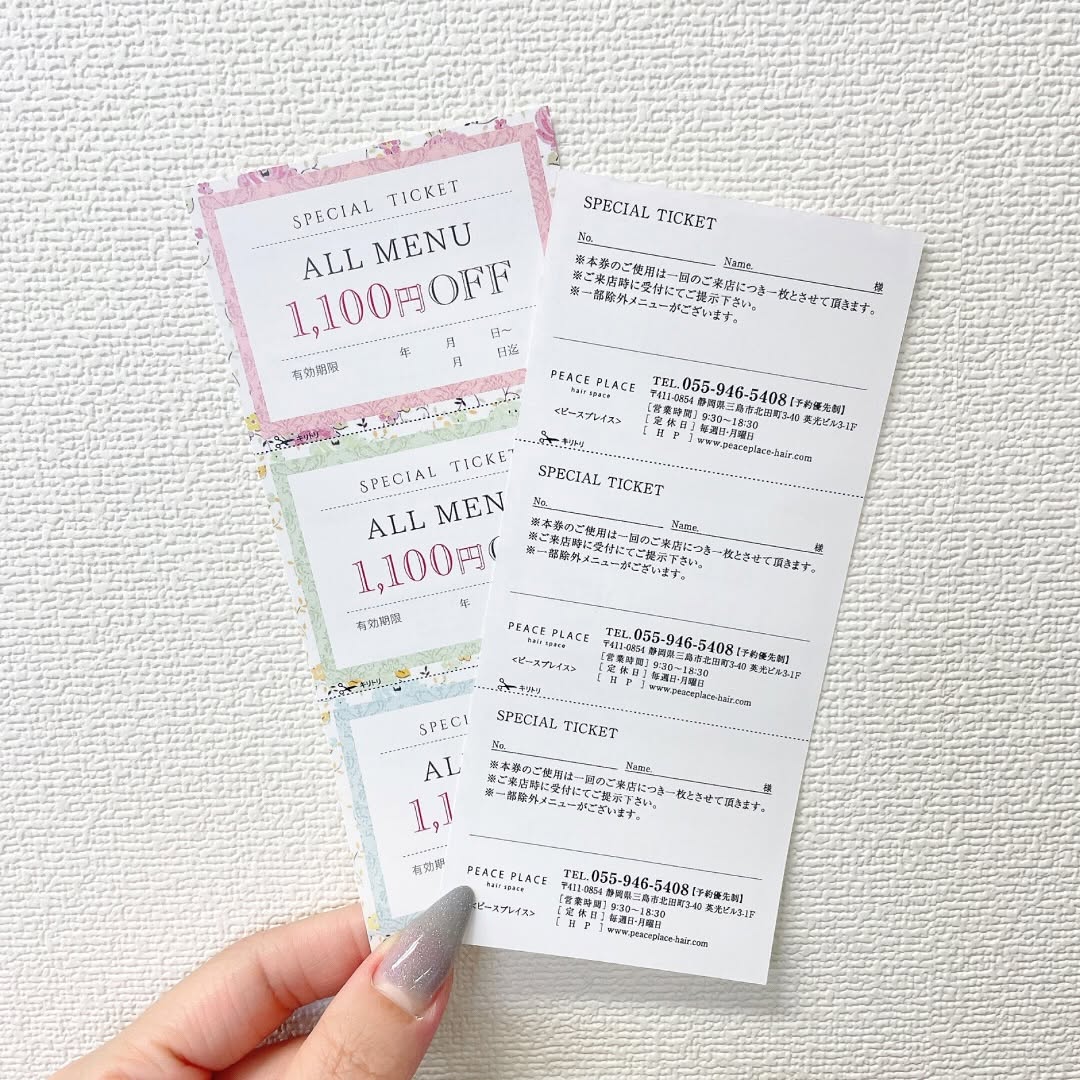 SPECIAL TICKET
ALL MENU
1,100円OFF
年 月 日〜
有効期限 月 日迄
キリトリ
SPECIAL TICKET
ALL MEN
1,100円O
年
有効期限
キリトリ
SPECI
AL
1,1
有効期
SPECIAL TICKET
No. Name. 様
※本券のご使用は一回のご来店につき一枚とさせて頂きます。
※ご来店時に受付にてご提示下さい。
※一部除外メニューがございます。
PEACE PLACE
hair space
<ピースプレイス>
TEL.055-946-5408【予約優先制】
〒411-0854 静岡県三島市北田町3-40 英光ビル3-1F
[営業時間] 9:30〜18:30
[定休日] 毎週日・月曜日
[HP] www.peaceplace-hair.com
キリトリ
SPECIAL TICKET
No. Name. 様
※本券のご使用は一回のご来店につき一枚とさせて頂きます。
※ご来店時に受付にてご提示下さい。
※一部除外メニューがございます。
PEACE PLACE
hair space
<ピースプレイス>
TEL.055-946-5408【予約優先制】
〒411-0854 静岡県三島市北田町3-40 英光ビル3-1F
[営業時間] 9:30〜18:30
[定休日] 毎週日・月曜日
[HP] www.peaceplace-hair.com
キリトリ
SPECIAL TICKET
No. Name. 様
※本券のご使用は一回のご来店につき一枚とさせて頂きます。
※ご来店時に受付にてご提示下さい。
※一部除外メニューがございます。
PEACE PLACE
hair space
<ピースプレイス>
TEL.055-946-5408【予約優先制】
〒411-0854 静岡県三島市北田町3-40 英光ビル3-1F
[営業時間] 9:30〜18:30
[定休日] 毎週日・月曜日
[HP] www.peaceplace-hair.com